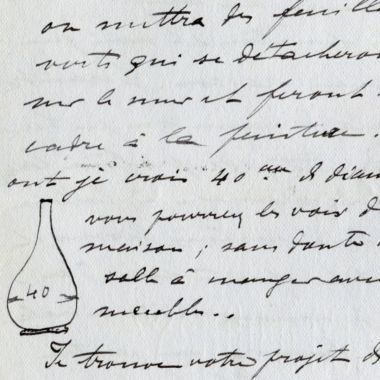 on mettra des feuill
verts qui se détachero
sur le mur et feront
cadre à la peinture.
ont je crois 40 de diam
vous pourrez les voir d
maison ; sans doute
salle à manger avec
40
meubles..
Je trouve votre projet d